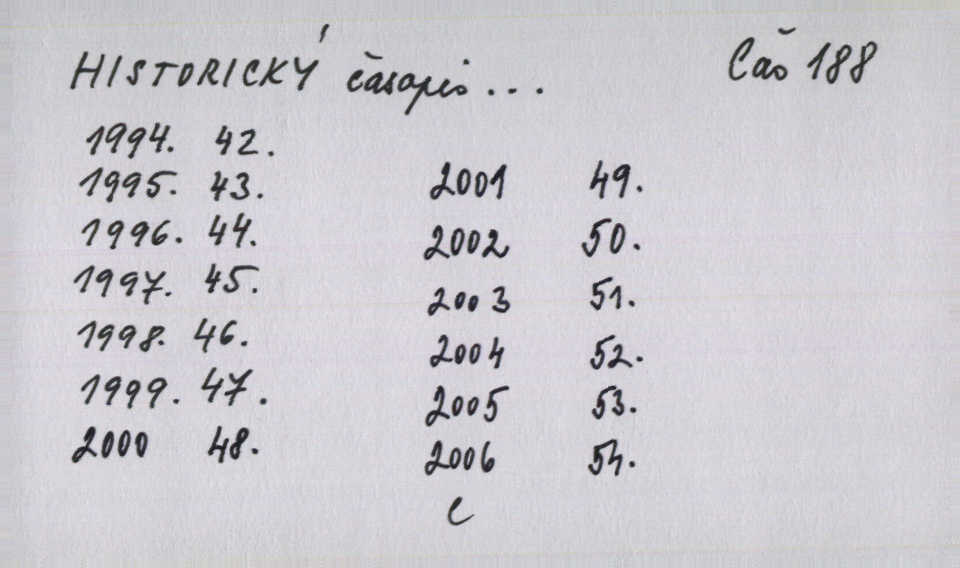 HISTORICKÝ časopis ...
Čas 188
1994. 42.
1995. 43.
1996. 44.
1997. 45.
1998. 46.
1999. 47.
2000 48.
2001 49.
2002 50.
2003 51.
2004 52.
2005 53.
2006 54.